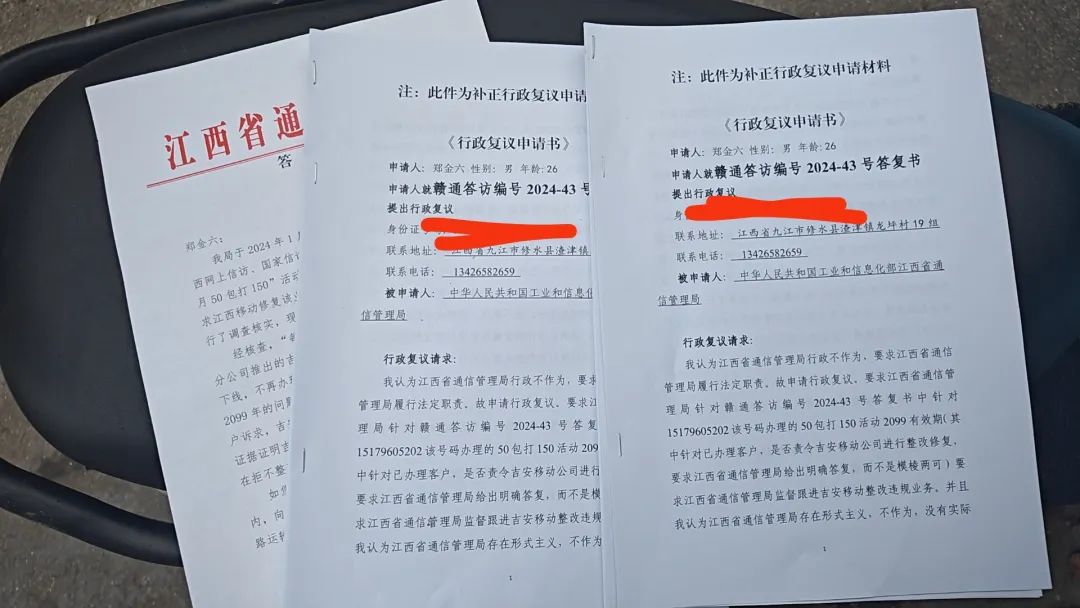 江西省通
答
郑金六：
我局于2024年1月
西网上信访、国家信访
月50包打150”活动
求江西移动修复该
行了调查核实，现
经核查，“每
分公司推出的吉
下线，不再办理
2099年的问题
户诉求，吉
证据证明吉
在拒不整
如
内，向
路运输
注：此件为补正行政复议申请
《行政复议申请书》
申请人：郑金六 性别：男 年龄:26
申请人就赣通答访编号 2024-43 号
提出行政复议
身份证
联系地址： 江西省九江市修水县渣津镇
联系电话： 13426582659
被申请人： 中华人民共和国工业和信息化
信管理局
行政复议请求：
我认为江西省通信管理局行政不作为，要求
管理局履行法定职责。故申请行政复议。要求江
理局针对赣通答访编号 2024-43号答复
15179605202该号码办理的50包打150活动2099
中针对已办理客户，是否责令吉安移动公司进行
要求江西省通信管理局给出明确答复，而不是模
求江西省通信管理局监督跟进吉安移动整改违规
我认为江西省通信管理局存在形式主义，不作为
1
注：此件为补正行政复议申请材料
《行政复议申请书》
申请人：郑金六 性别：男 年龄:26
申请人就赣通答访编号 2024-43 号答复书
提出行政复议
身
联系地址： 江西省九江市修水县渣津镇龙坪村19组
联系电话： 13426582659
被申请人： 中华人民共和国工业和信息化部江西省通
信管理局
行政复议请求：
我认为江西省通信管理局行政不作为，要求江西省通信
管理局履行法定职责。故申请行政复议。要求江西省通信管
理局针对赣通答访编号 2024-43号答复书中针对
15179605202该号码办理的50包打150活动2099有效期(其
中针对已办理客户，是否责令吉安移动公司进行整改修复，
要求江西省通信管理局给出明确答复，而不是模棱两可）要
求江西省通信管理局监督跟进吉安移动整改违规业务。并且
我认为江西省通信管理局存在形式主义，不作为，没有实际
1